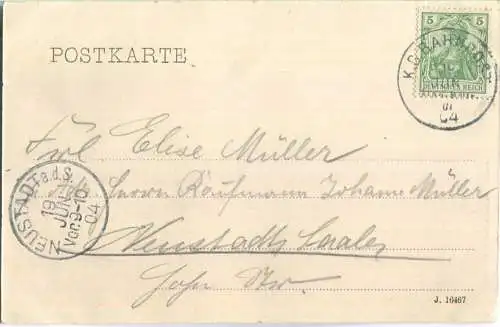 POSTKARTE
5 5
DEUTSCHES REICH
K.G. BAHNPOST
04
Frl Elise Müller
Adr. Herrn Kaufmann Johann Müller
Neustadt Saale
Hohn Str
NEUSTADT a.d.S.
19
JUN
Vor. 9-10
04
J. 10467